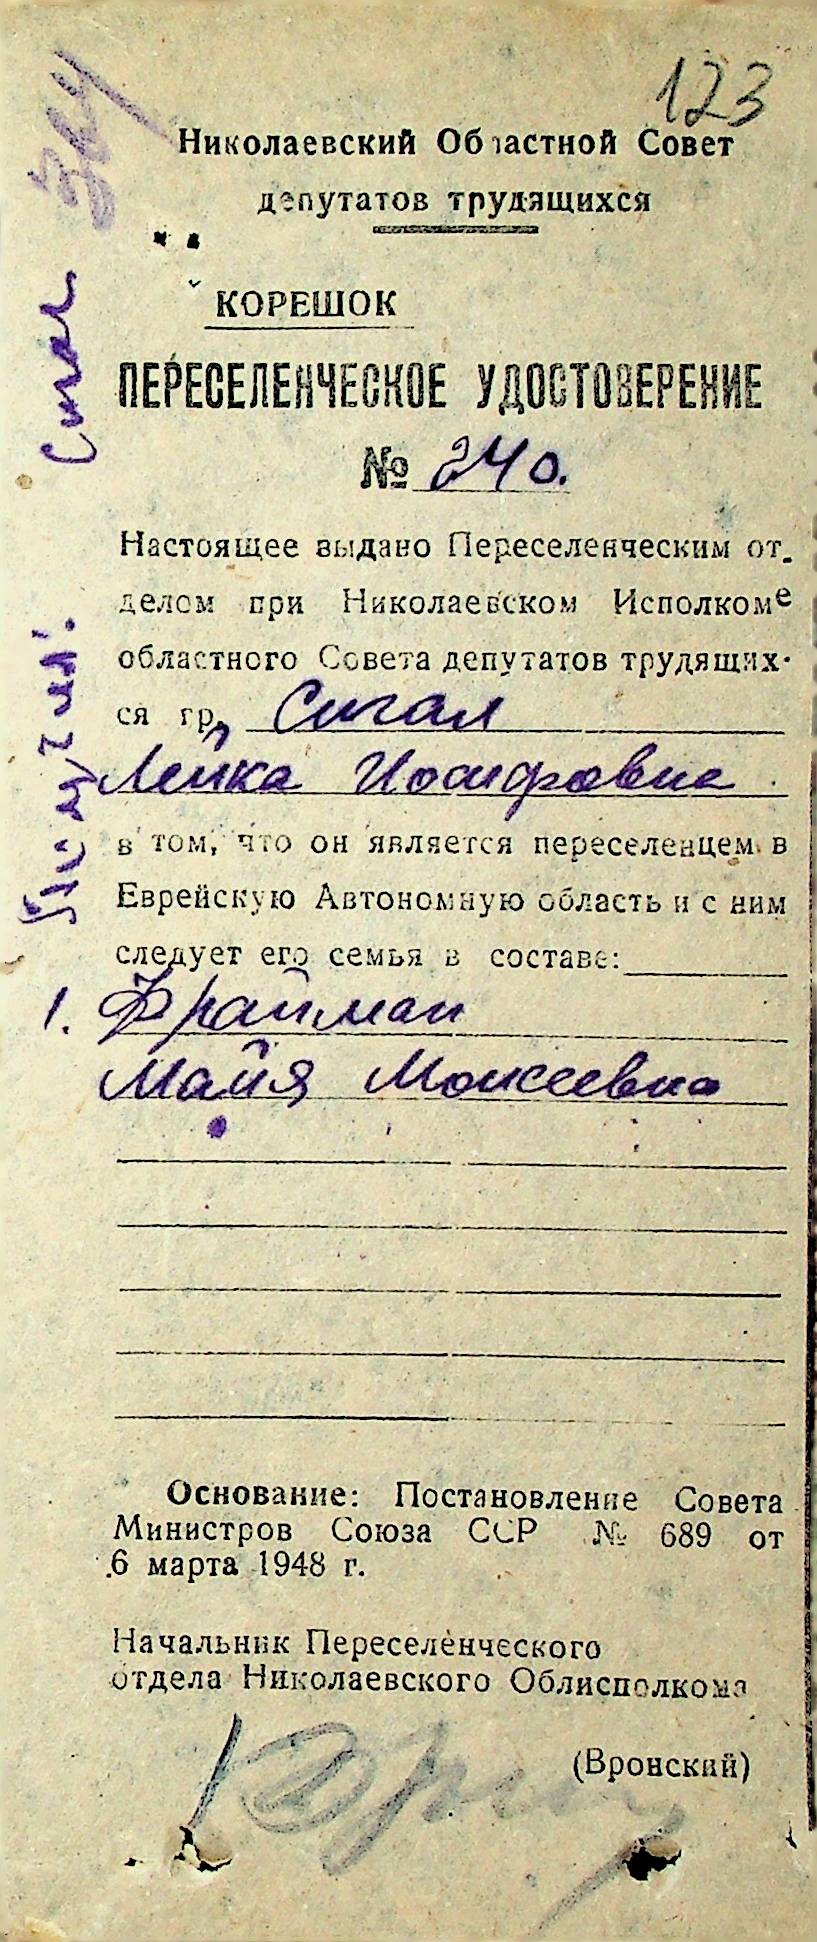 123
Николаевский Областной Совет
депутатов трудящихся
КОРЕШОК
ПЕРЕСЕЛЕНЧЕСКОЕ УДОСТОВЕРЕНИЕ
№ 240.
Настоящее выдано Переселенческим от-
делом при Николаевском Исполкоме
областного Совета депутатов трудящих-
ся гр. Сигал
Лейка Иосифовна
в том, что он является переселенцем в
Еврейскую Автономную область и с ним
следует его семья в составе:
1. Фрайман
Майя Моисеевна
Основание: Постановление Совета
Министров Союза ССР № 689 от
6 марта 1948 г.
Начальник Переселенческого
отдела Николаевского Облисполкома
(Вронский)
Получил: Сигал